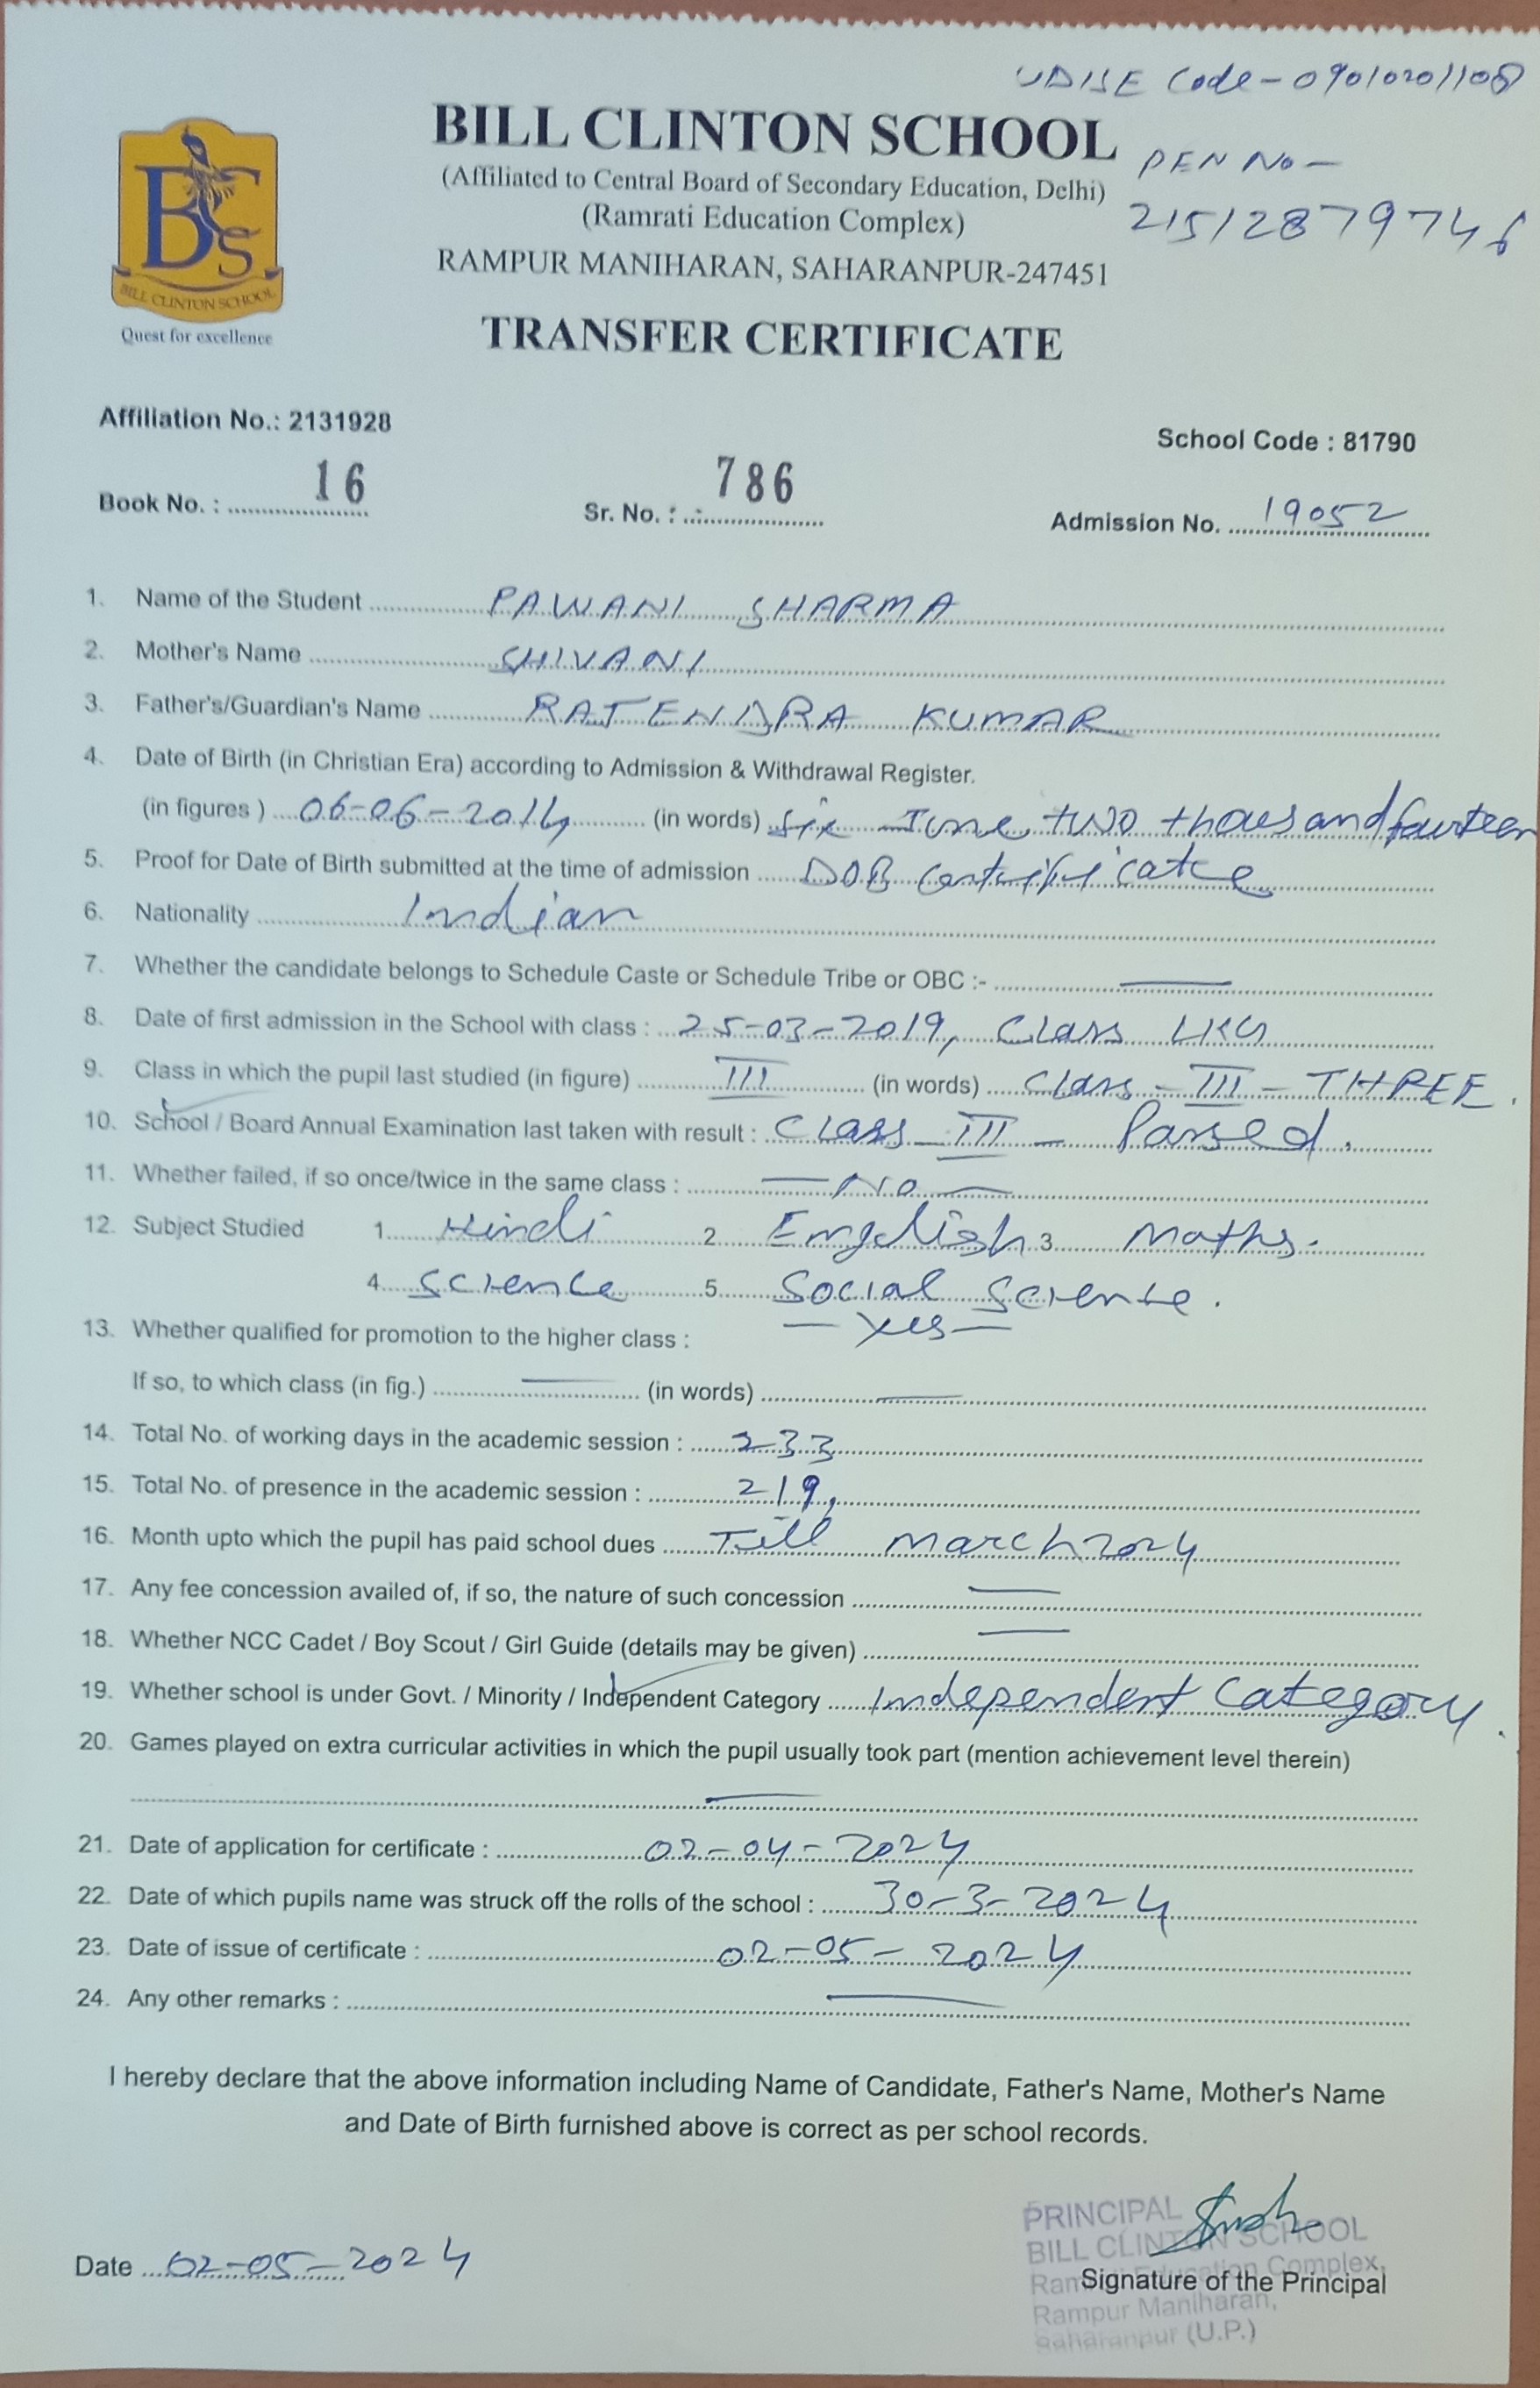 UDISE Code - 09010201108
BILL CLINTON SCHOOL
(Affiliated to Central Board of Secondary Education, Delhi)
PEN No -
(Ramrati Education Complex)
21512879746
RAMPUR MANIHARAN, SAHARANPUR-247451
BCS
BILL CLINTON SCHOOL
Quest for excellence
TRANSFER CERTIFICATE
Affiliation No.: 2131928
School Code : 81790
Book No. : 16 Sr. No. : 786 Admission No. 19052
1. Name of the Student PAWANI SHARMA
2. Mother's Name SHIVANI
3. Father's/Guardian's Name RATENDRA KUMAR
4. Date of Birth (in Christian Era) according to Admission & Withdrawal Register.
(in figures ) 06-06-2014 (in words) Six June two thousand fourteen
5. Proof for Date of Birth submitted at the time of admission DOB
6. Nationality Indian
7. Whether the candidate belongs to Schedule Caste or Schedule Tribe or OBC :- —
8. Date of first admission in the School with class : 25-03-2019, Class LKG
9. Class in which the pupil last studied (in figure) III (in words) Class - III - THREE.
10. School / Board Annual Examination last taken with result : Class III - Passed.
11. Whether failed, if so once/twice in the same class : — No —
12. Subject Studied 1. Hindi 2. English 3. Maths.
4. Science 5. Social Science.
13. Whether qualified for promotion to the higher class : — Yes —
If so, to which class (in fig.) — (in words) —
14. Total No. of working days in the academic session : 233
15. Total No. of presence in the academic session : 219,
16. Month upto which the pupil has paid school dues Till March 2024
17. Any fee concession availed of, if so, the nature of such concession —
18. Whether NCC Cadet / Boy Scout / Girl Guide (details may be given) —
19. Whether school is under Govt. / Minority / Independent Category Independent Category.
20. Games played on extra curricular activities in which the pupil usually took part (mention achievement level therein)
—
21. Date of application for certificate : 02-04-2024
22. Date of which pupils name was struck off the rolls of the school : 30-3-2024
23. Date of issue of certificate : 02-05-2024
24. Any other remarks : —
I hereby declare that the above information including Name of Candidate, Father's Name, Mother's Name
and Date of Birth furnished above is correct as per school records.
PRINCIPAL
BILL CLINTON SCHOOL
Ramrati Education Complex,
Date 02-05-2024 Signature of the Principal
Rampur Maniharan,
Saharanpur (U.P.)